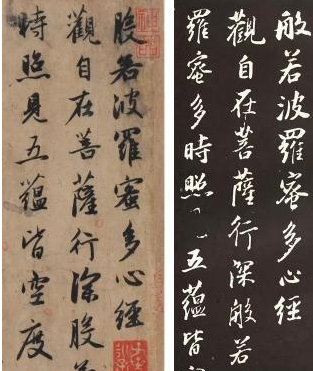 般若波羅蜜多心經
觀自在菩薩行深般若
時照見五蘊皆空度
般若波羅蜜多心經
觀自在菩薩行深般若
羅蜜多時照五蘊皆